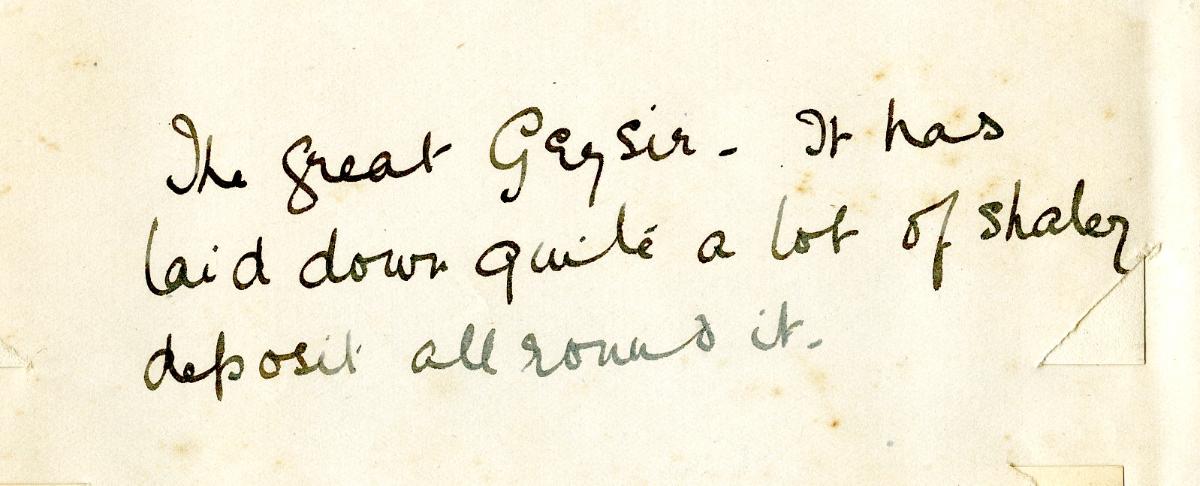 The great Geysir. It has
laid down quite a lot of shaley
deposit all round it.